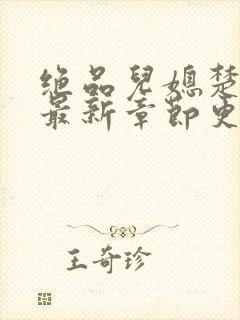 绝品儿媳楚
最新章节更
王奇珍